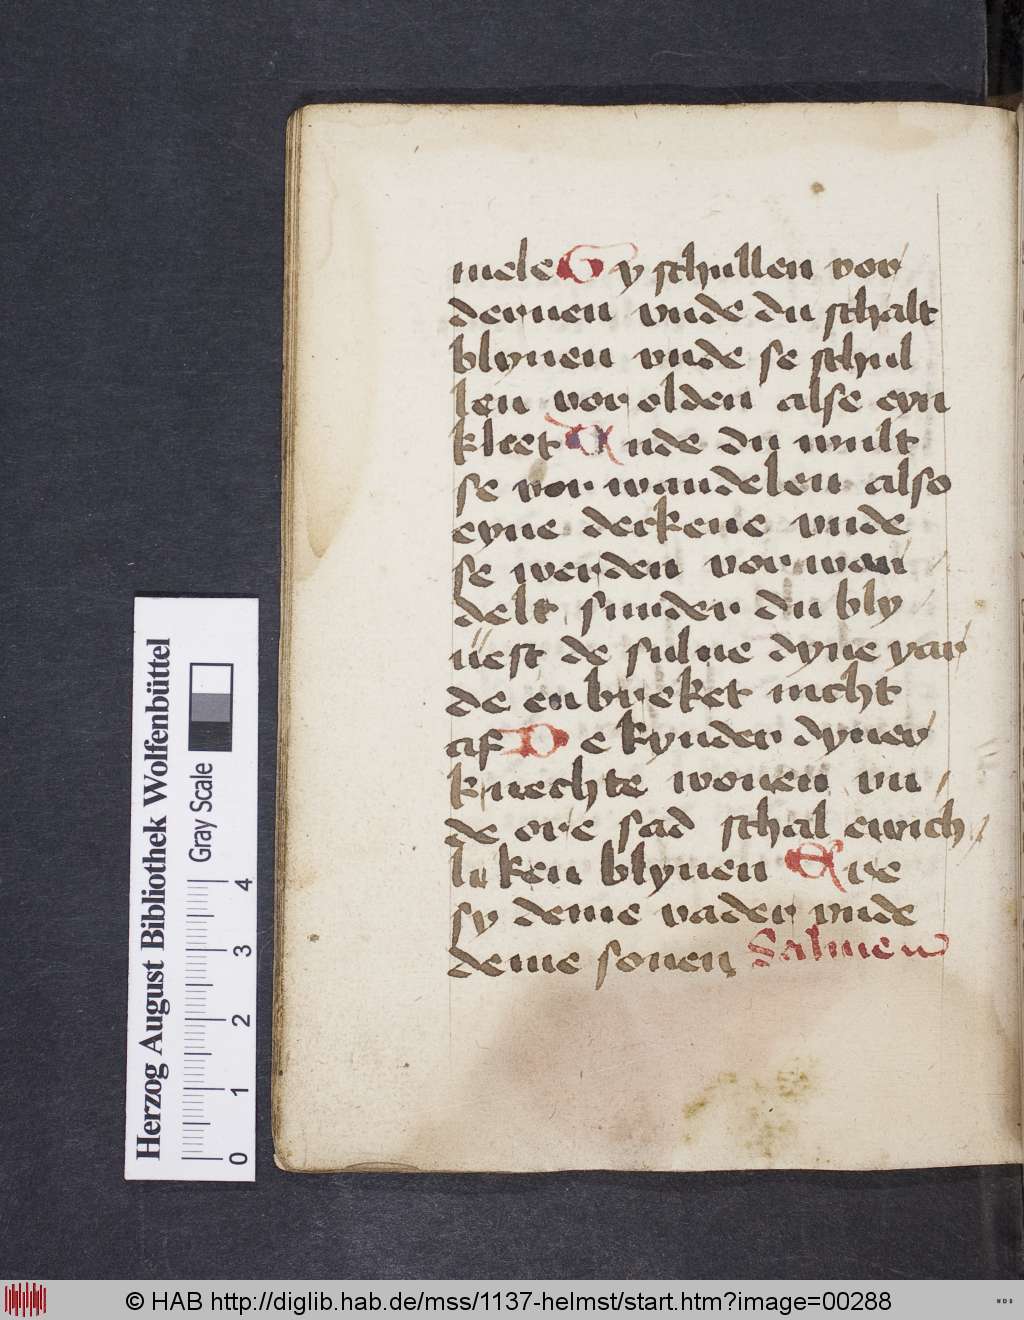 mele Gy schullen vor
deruen vnde du schalt
blyuen vnde se schul
len vor olden alse eyn
kleet Vnde du wult
se vor wandelen also
eyne deckene vnde
se werden vor wan
delt sunder du bly
uest de sulue dyne yar
de enbreket nicht
af De kynder dyner
knechte wonen vn
de ore sad schal ewich
liken blyuen Ere
sy deme vader vnde
deme sonen Salmen
Herzog August Bibliothek Wolfenbüttel
Gray Scale
0 1 2 3 4
© HAB http://diglib.hab.de/mss/1137-helmst/start.htm?image=00288